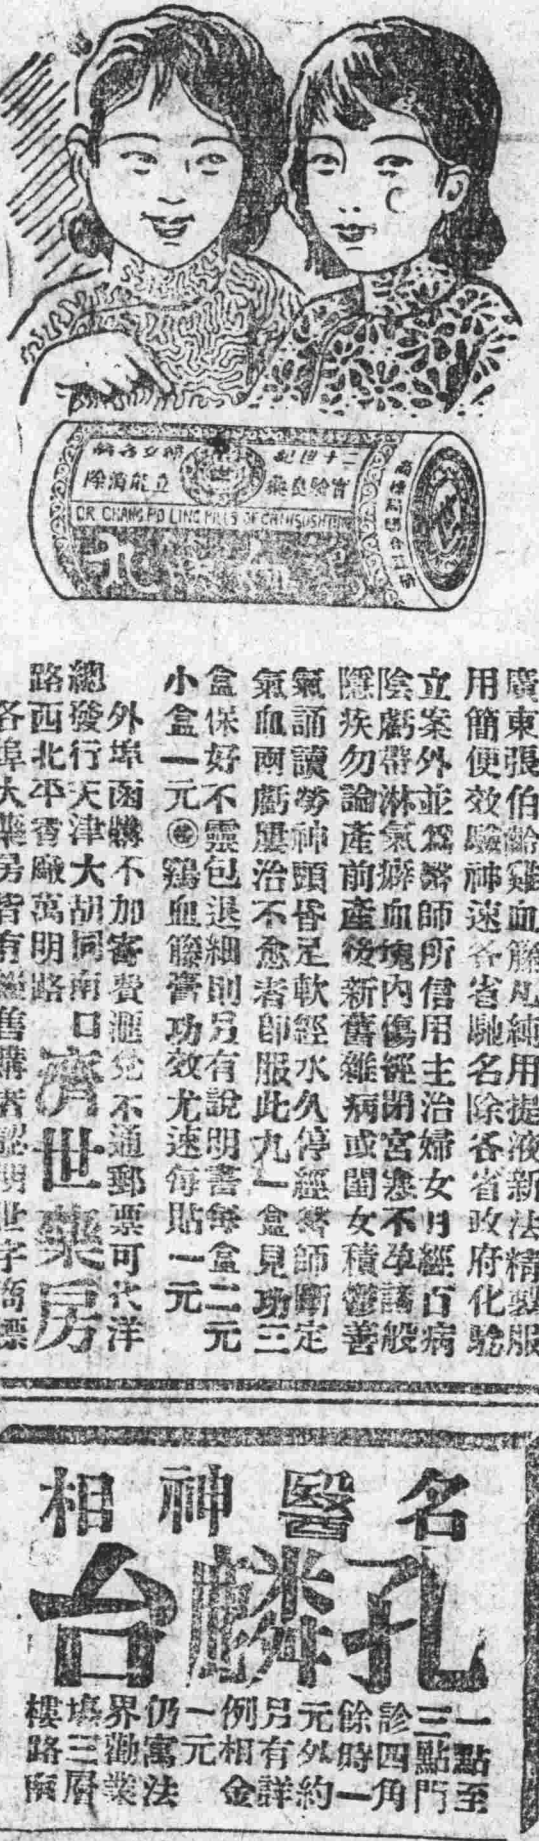 二十世紀
婦女各病
實驗良藥
立能消除
DR. CHANG PO LING PILLS OF
血
丸
廣東張伯齡雞血籐丸純用提液新法精製服
用簡便效驗神速各省馳名除各省政府化驗
立案外並爲醫師所信用主治婦女月經百病
陰虧帶淋氣癖血塊內傷經閉宮寒不孕諸般
隱疾勿論產前產後新舊雜病或閨女積鬱善
氣誦讀勞神頭昏足軟經水久停經醫師斷定
氣血兩虧屢治不愈者卽服此丸一盒見功三
盒保好不靈包退細則另有說明書每盒二元
小盒一元㊕鷄血籐膏功效尤速每貼一元
外埠函購不加寄費滙兌不通郵票可代洋
總發行天津大胡同南口
路西北平香廠萬明路
濟世藥房
各埠大藥房皆有經售購者認明世字商標
名醫神相
孔麟台
一點至
三點門
診四角
餘時一
元外約
另有詳
例相金
一元
仍寓法
界勸業
塲三層
樓路南